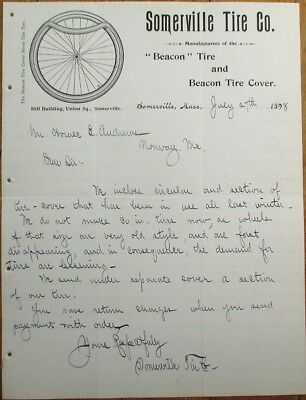 Somerville Tire Co.
Manufacturers of the
"Beacon" Tire
and
Beacon Tire Cover.
The Beacon Tire Cover Saves The Tire.
Hill Building, Union Sq., Somerville.
Somerville, Mass. July 189
Mr. Horace E. Andrews
Norway, Me.
Dear Sir:-
We inclose circular and section of
tire-cover that has been in use all last winter.
We do not make 30 in. tire now, as wheels
of that size are very old style, and are fast
disappearing, and in consequence, the demand for
tires are lessening.
We send under separate cover a section
of our tire.
You save return charges when you send
payment with order.
Yours Respectfully
Somerville Tire Co.